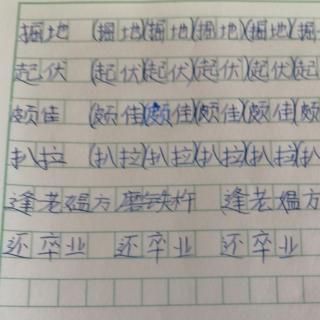 掘地 (掘地)(掘地)(掘地)(掘地)(掘
起伏 (起伏)(起伏)(起伏)(起伏)(起
颇佳 (颇佳)(颇佳)(颇佳)(颇佳)(颇
扒拉 (扒拉)(扒拉)(扒拉)(扒拉)(扒
逢老媪方磨铁杵 逢老媪方
还卒业 还卒业 还卒业